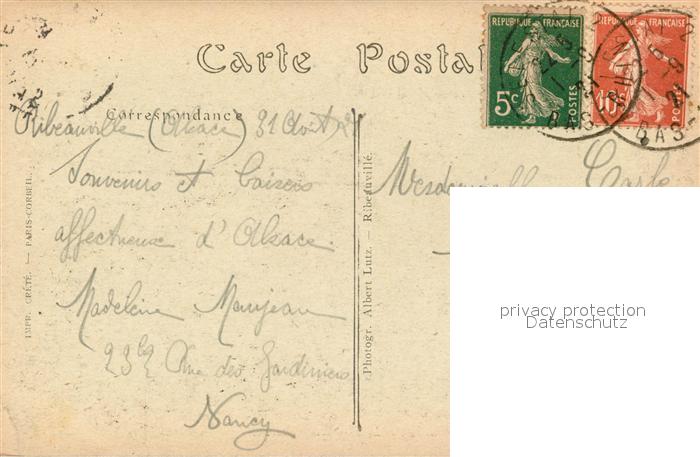 Carte Postal
Correspondance
Ribeauville (Alsace) 31 Août 21
Souvenirs et baisers
affectueux d'Alsace.
Madeleine Manjean
23 bis Rue des Jardiniers
Nancy
IMPR. CRÉTÉ. — PARIS-CORBEIL.
Photogr. Albert Lutz. — Ribeauvillé.
REPUBLIQUE FRANÇAISE
5c
POSTES
REPUBLIQUE FRANÇAISE
10c
BAS-
BAS-
Mesdemoiselle
privacy protection
Datenschutz